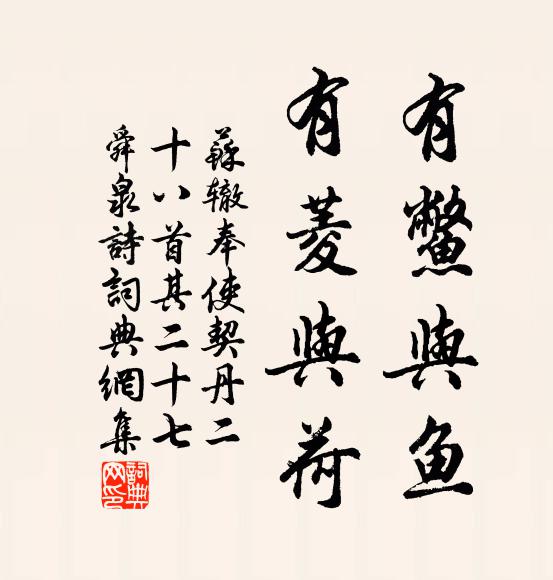 有鳖與鱼
有菱與荷
蘇辙奉使契丹二
十八首其二十七
舜泉詩詞典網集
詞典
网印